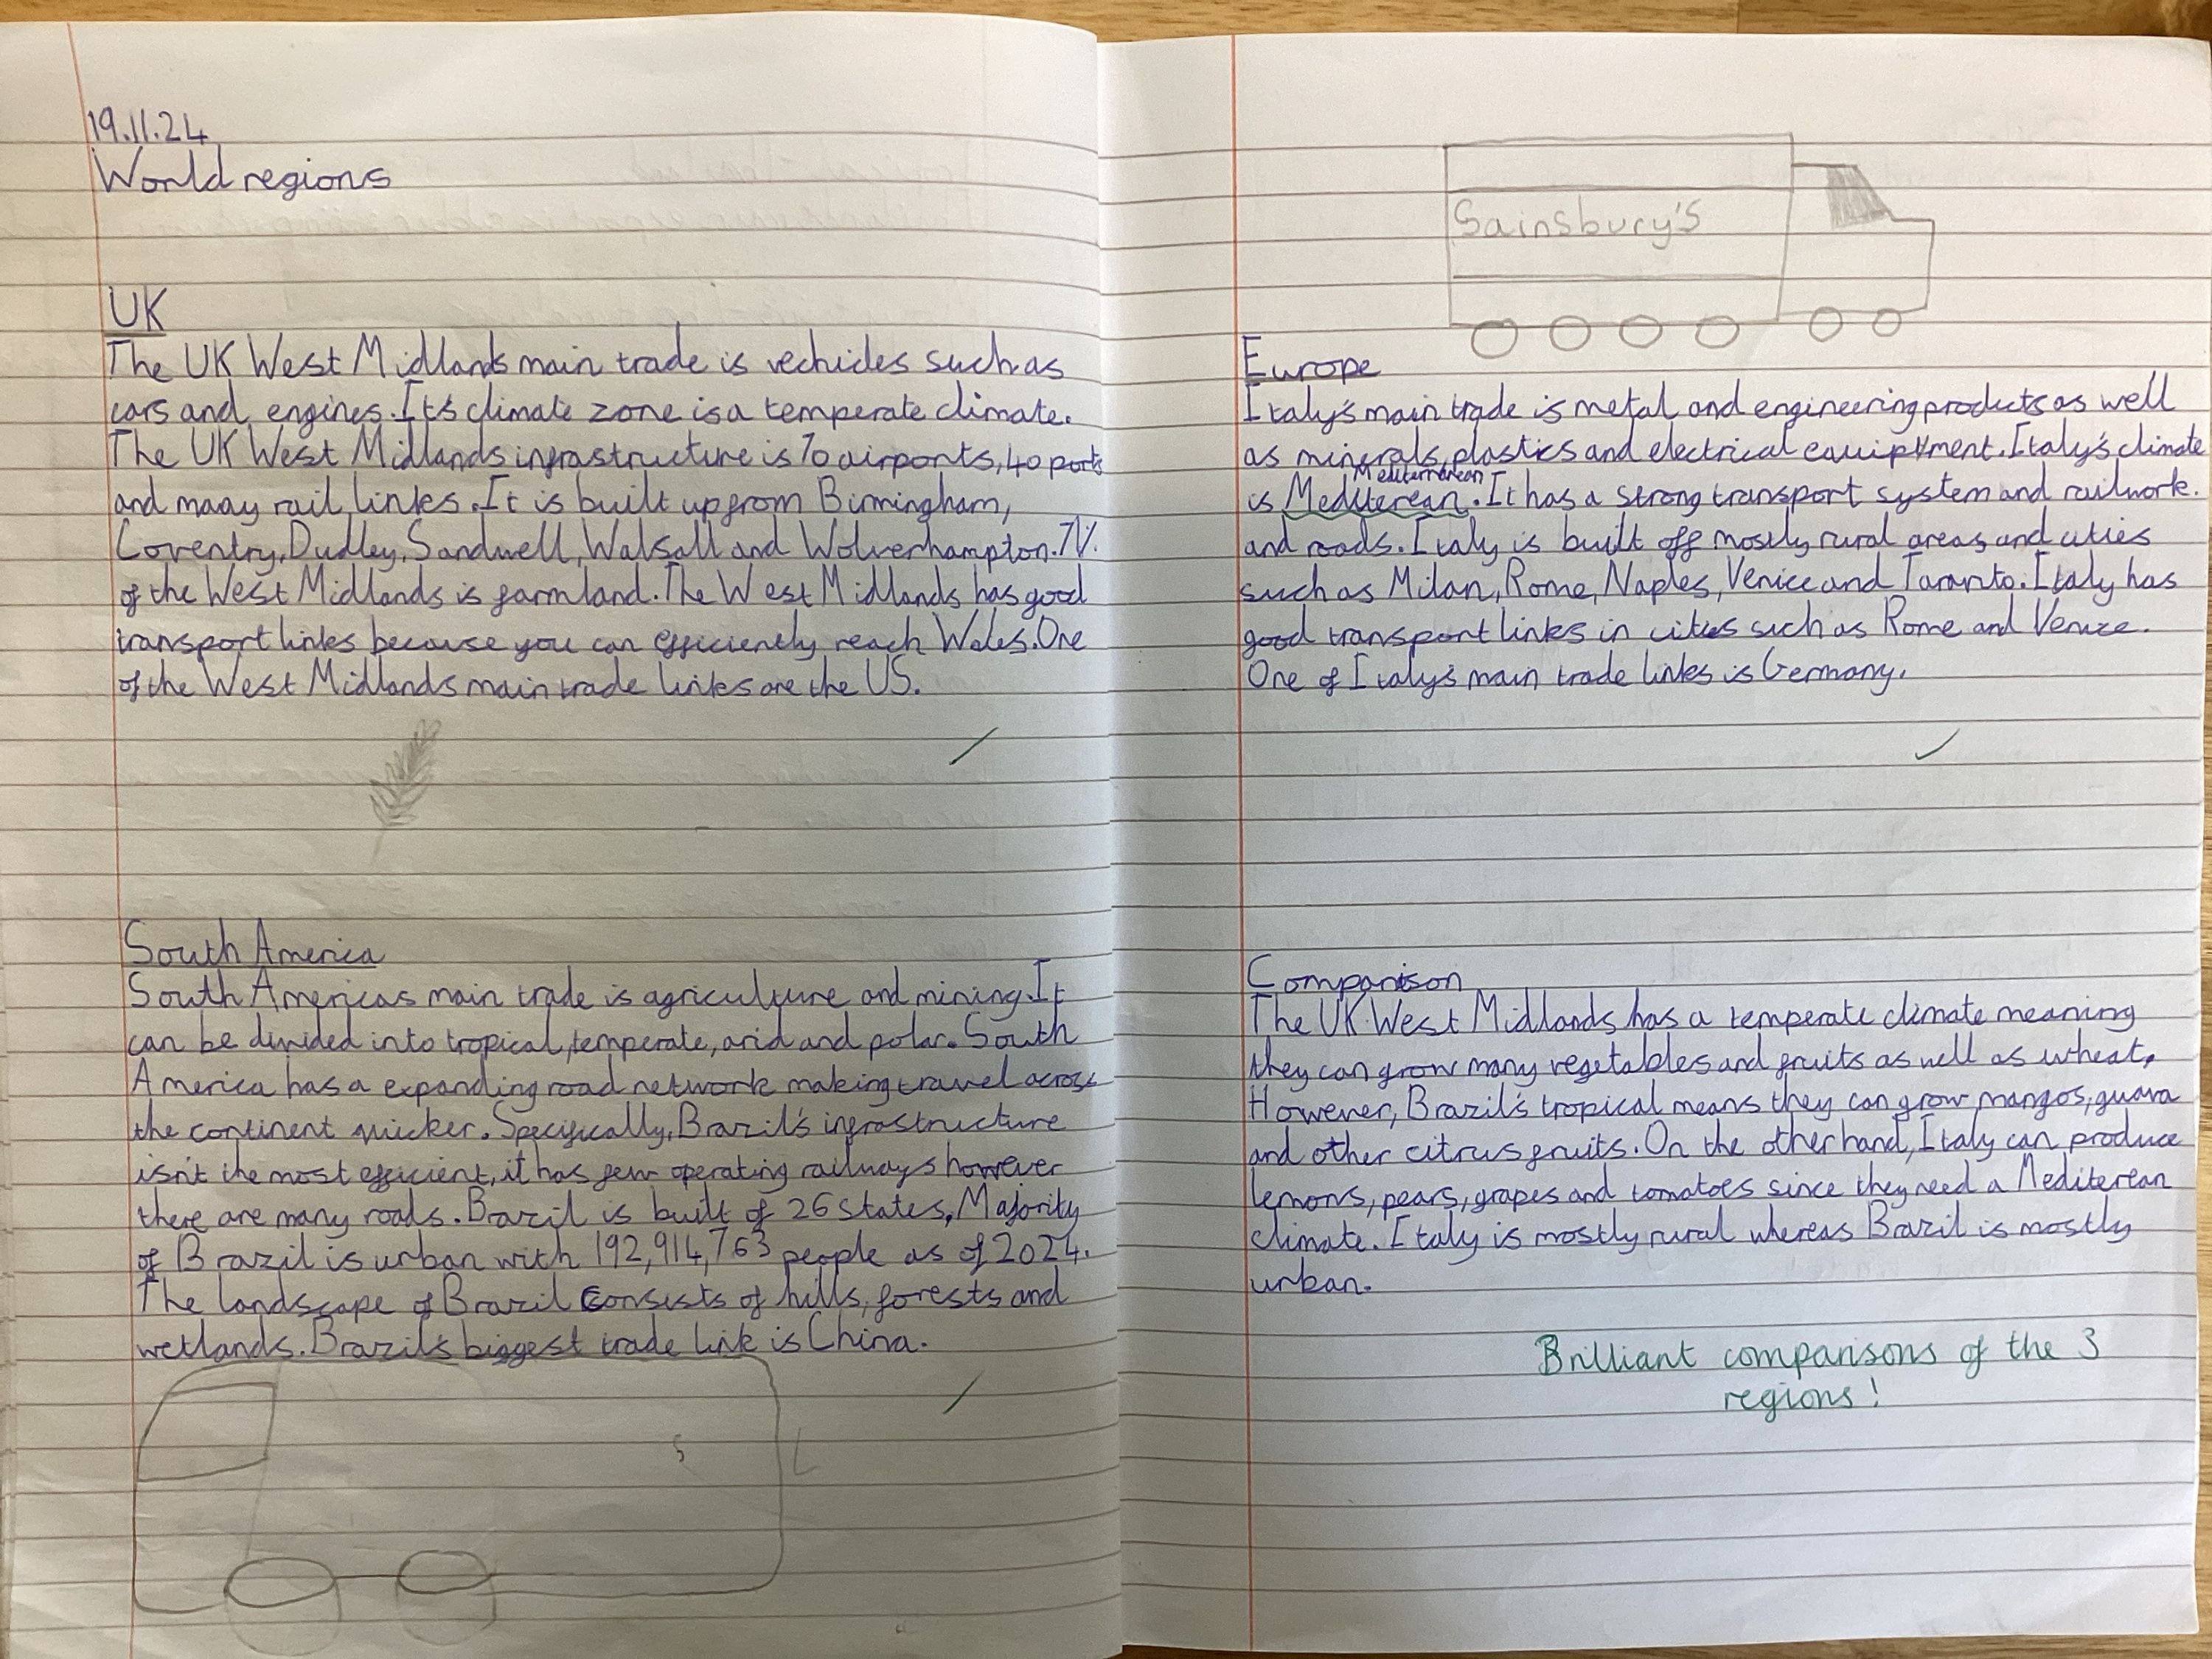 19.11.24
World regions
UK
The UK West Midlands main trade is vechicles such as
cars and engines. It's climate zone is a temperate climate.
The UK West Midlands infrastructure is 70 airports, 40 ports
and many rail links. It is built up from Birmingham,
Coventry, Dudley, Sandwell, Walsall and Wolverhampton. 71%
of the West Midlands is farmland. The West Midlands has good
transport links because you can efficiently reach Wales. One
of the West Midlands main trade links are the US.
South America
South Americas main trade is agriculture and mining. It
can be divided into tropical, temperate, arid and polar. South
America has a expanding road network making travel across
the continent quicker. Specifically, Brazil's infrastructure
isn't the most efficient, it has few operating railways however
there are many roads. Brazil is built of 26 states. Majority
of Brazil is urban with 192,914,763 people as of 2024.
The landscape of Brazil consists of hills, forests and
wetlands. Brazil's biggest trade link is China.
Sainsbury's
Europe
Italy's main trade is metal and engineering products as well
as minerals, plastics and electrical equiptment. Italy's climate
Mediterranean
is Mediterean. It has a strong transport system and railwork.
and roads. Italy is built off mostly rural areas and cities
such as Milan, Rome, Naples, Venice and Taranto. Italy has
good transport links in cities such as Rome and Venice.
One of Italy's main trade links is Germany.
Comparison
The UK West Midlands has a temperate climate meaning
they can grow many vegetables and fruits as well as wheat,
However, Brazil's tropical means they can grow mangos, guava
and other citrus fruits. On the other hand, Italy can produce
lemons, pears, grapes and tomatoes since they need a Mediterean
climate. Italy is mostly rural whereas Brazil is mostly
urban.
Brilliant comparisons of the 3
regions!